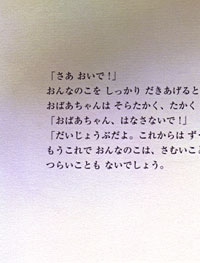 「さあ おいで！」
おんなのこを しっかり だきあげると
おばあちゃんは そらたかく、たかく
「おばあちゃん、はなさないで！」
「だいじょうぶだよ。これからは ず
もうこれで おんなのこは、さむいこ
つらいことも ないでしょう。